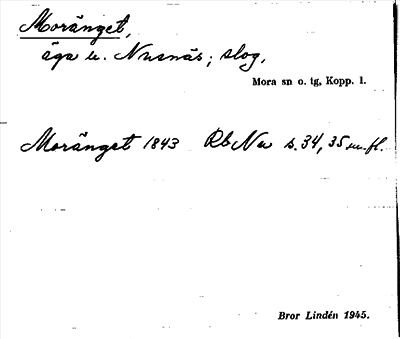 Moränget,
äga u. Nusnäs; slog.
Mora sn o. tg, Kopp. l.
Moränget 1843 Rb Nu s. 34, 35 m. fl.
Bror Lindén 1945.